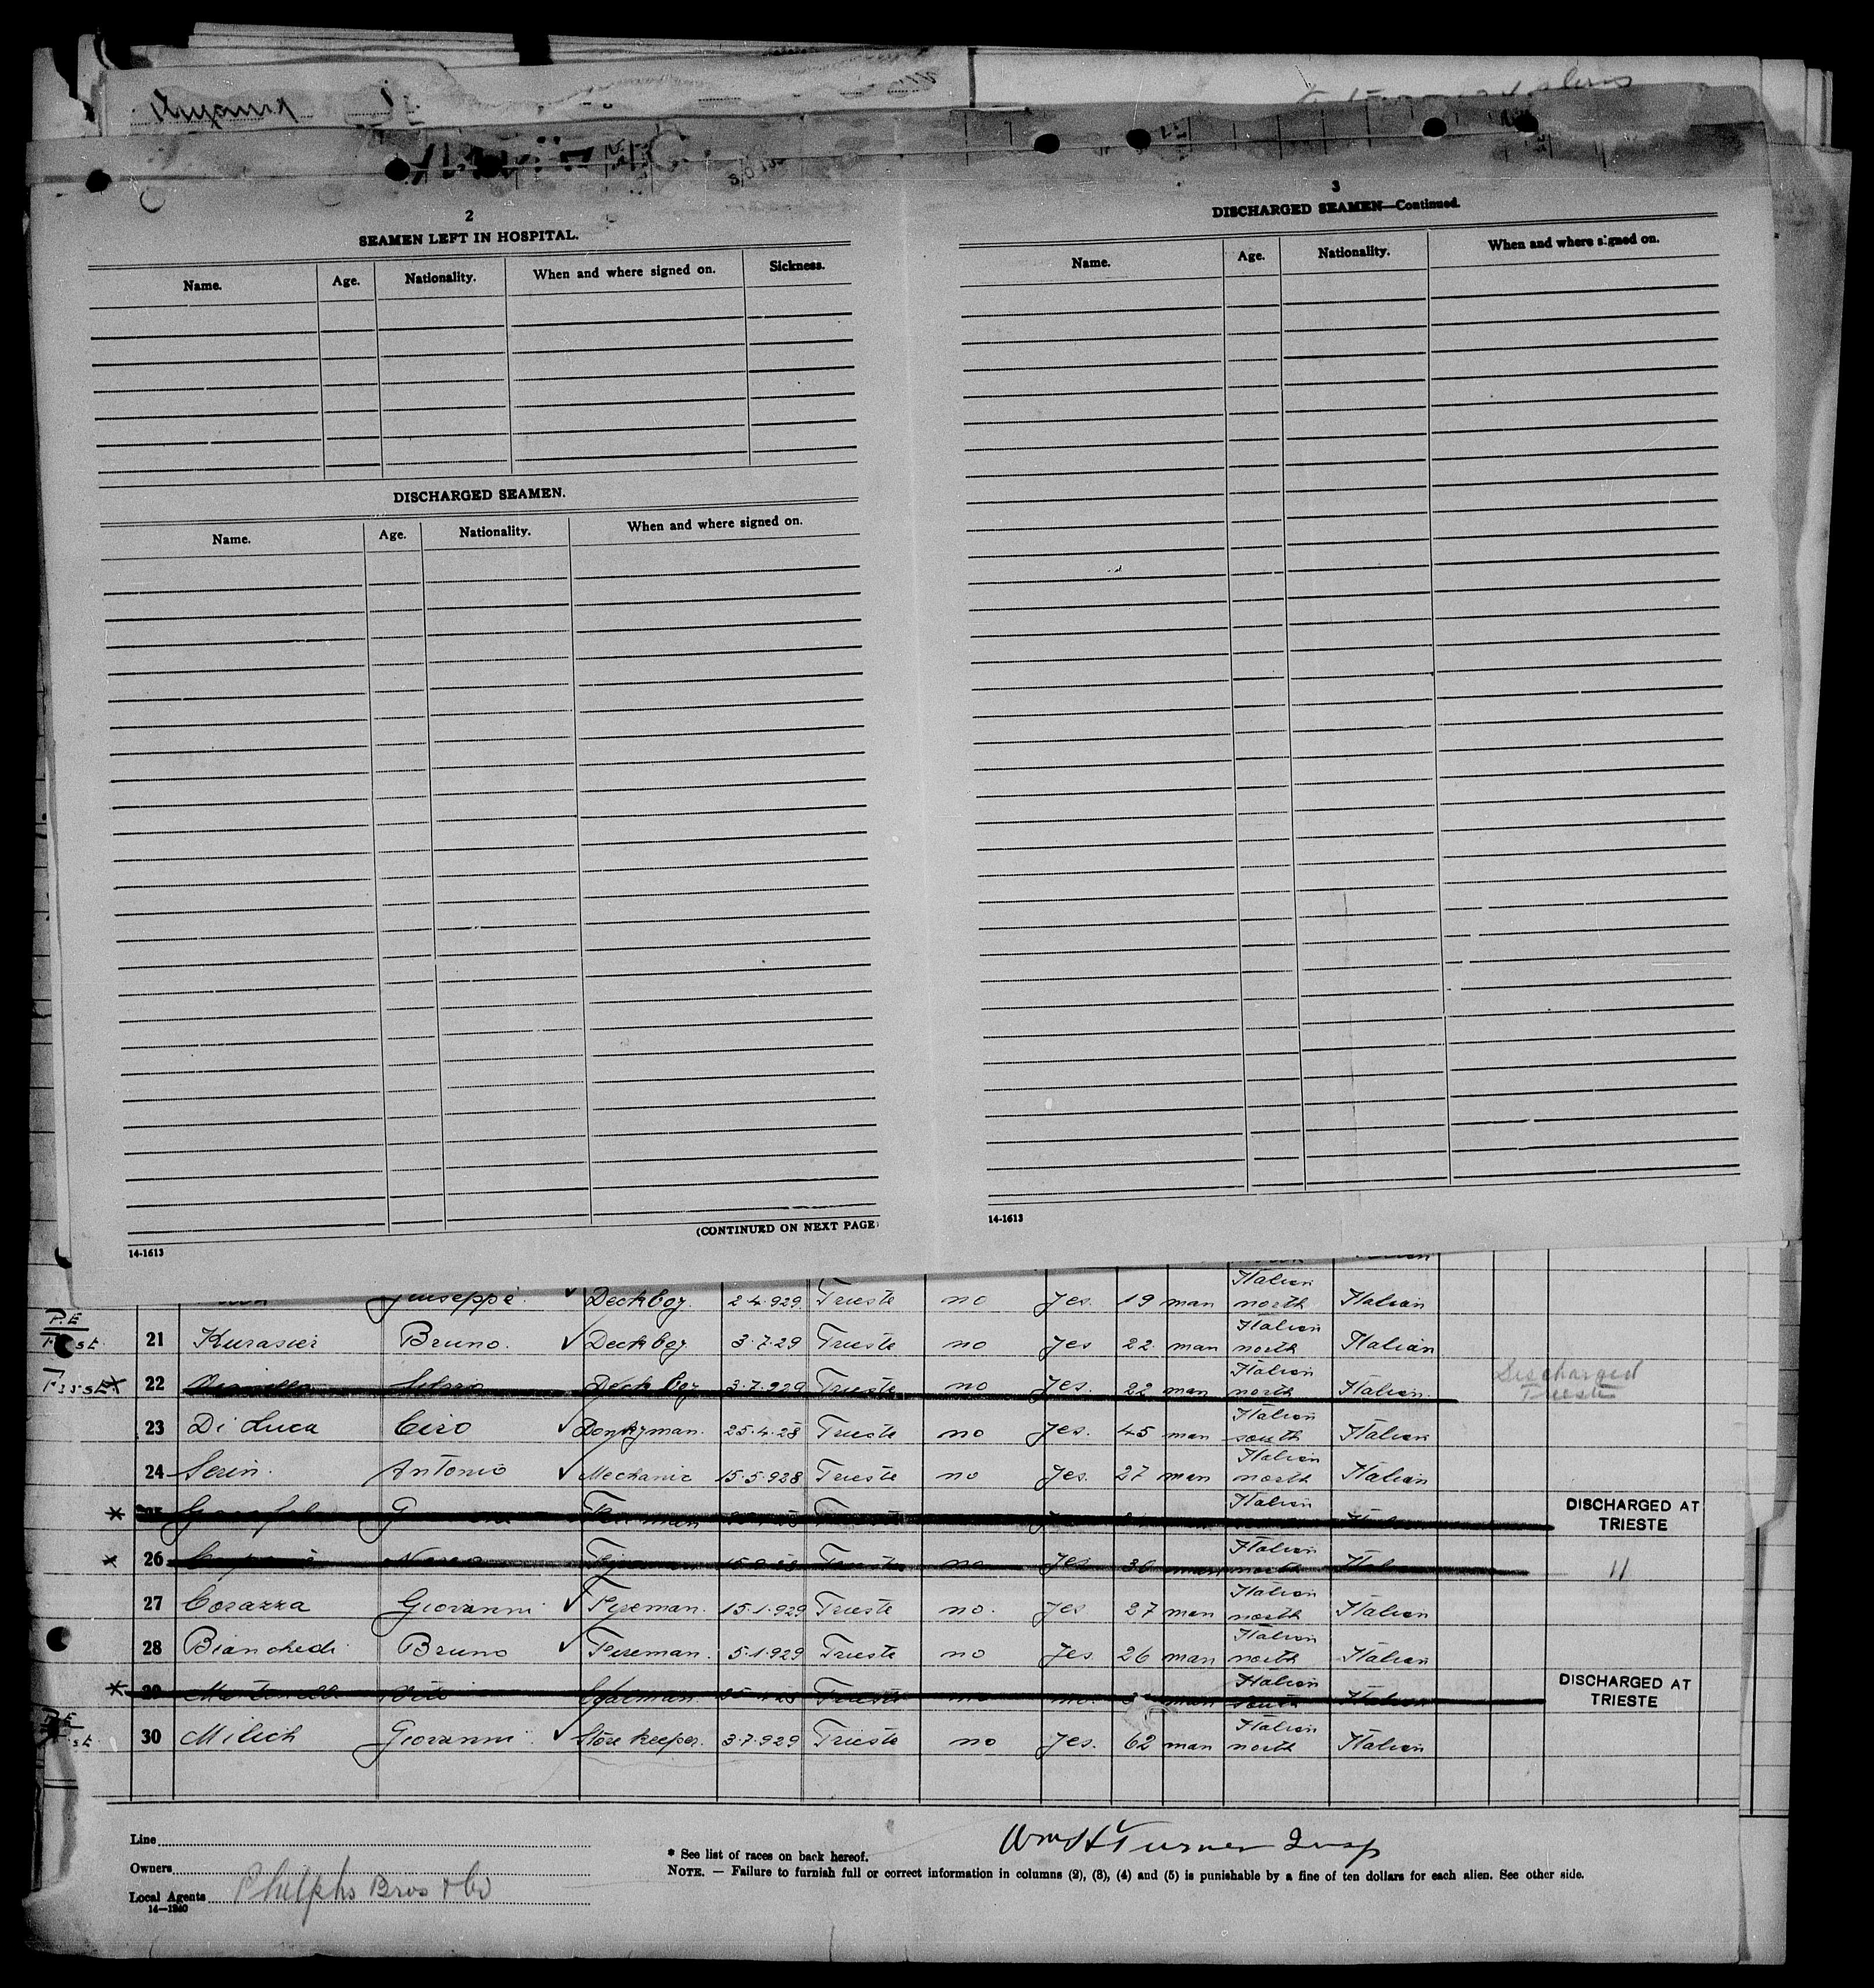 2
SEAMEN LEFT IN HOSPITAL.
Name. Age. Nationality. When and where signed on. Sickness.
DISCHARGED SEAMEN.
Name. Age. Nationality. When and where signed on.
(CONTINUED ON NEXT PAGE)
14-1613
3
DISCHARGED SEAMEN—Continued.
Name. Age. Nationality. When and where signed on.
14-1613
Giuseppe. Deck boy. 2.4.929 Trieste no Yes. 19 man Italian north Italian
P.E
First. 21 Kurasier Bruno. Deck boy 3.7.29 Trieste no Yes 22 man Italian north Italian
First 22 Deck boy 3.7.929 Trieste no Yes. 22 man Italian north Italian. Discharged Trieste
23 Di Luca Ciro Donkyman. 25.4.28 Trieste no Yes. 45 man Italian south Italian
24 Serin. Antonio Mechanic 15.5.928 Trieste no Yes. 27 man Italian north Italian
25 Trieste Italian DISCHARGED AT TRIESTE
26 Trieste no Yes 30 man Italian north Italian 11
27 Corazza Giovanni Fireman. 15.1.929 Trieste no. Yes 27 man Italian north Italian
28 Bianchedi Bruno Fireman. 5.1.929 Trieste no Yes. 26 man Italian north Italian
29 Vito Coalman. Trieste no no. man Italian south Italian DISCHARGED AT TRIESTE
30 Milich Giovanni. Store keeper. 3.7.929 Trieste no Yes. 62 man Italian north Italian
Line
Owners
Local Agents Phelphs Bros & Co
14—1240
* See list of races on back hereof.
NOTE. — Failure to furnish full or correct information in columns (2), (3), (4) and (5) is punishable by a fine of ten dollars for each alien. See other side.
Wm H Turner Insp